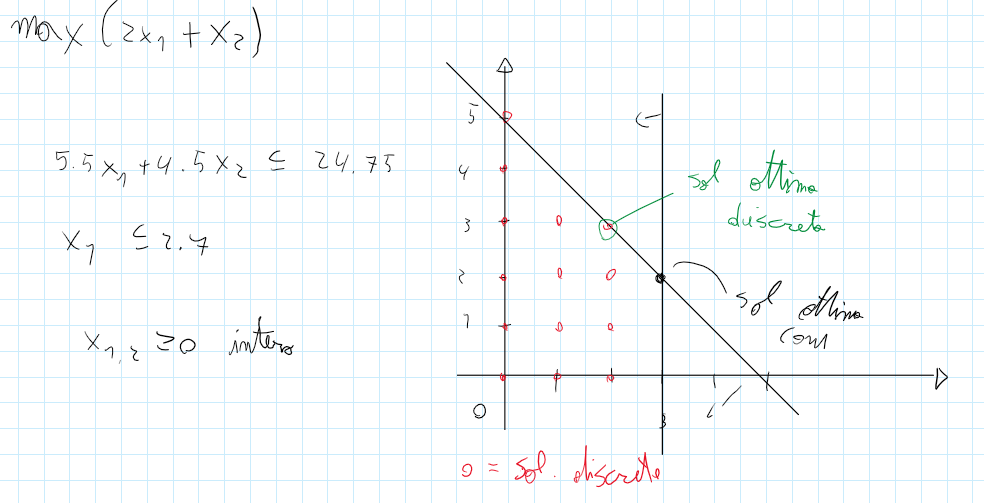 max (2x₁ + x₂)
5.5x₁ + 4.5x₂ ≤ 24.75
x₁ ≤ 2.7
x₁,₂ ≥ 0 intero
5
4
3
2
1
0
3
sol ottima
discreta
sol ottima
cont
o = sol. discrete